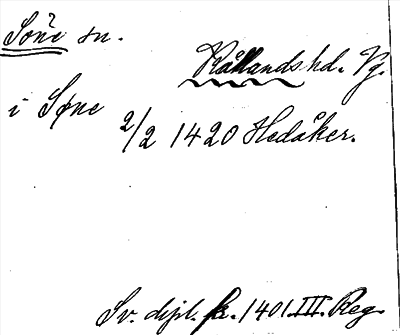 Söne sn.
Kållands hd. Vg.
i Søne
2/2 1420 Hedåker.
Sv. dipl. fr. 1401 III. Reg.